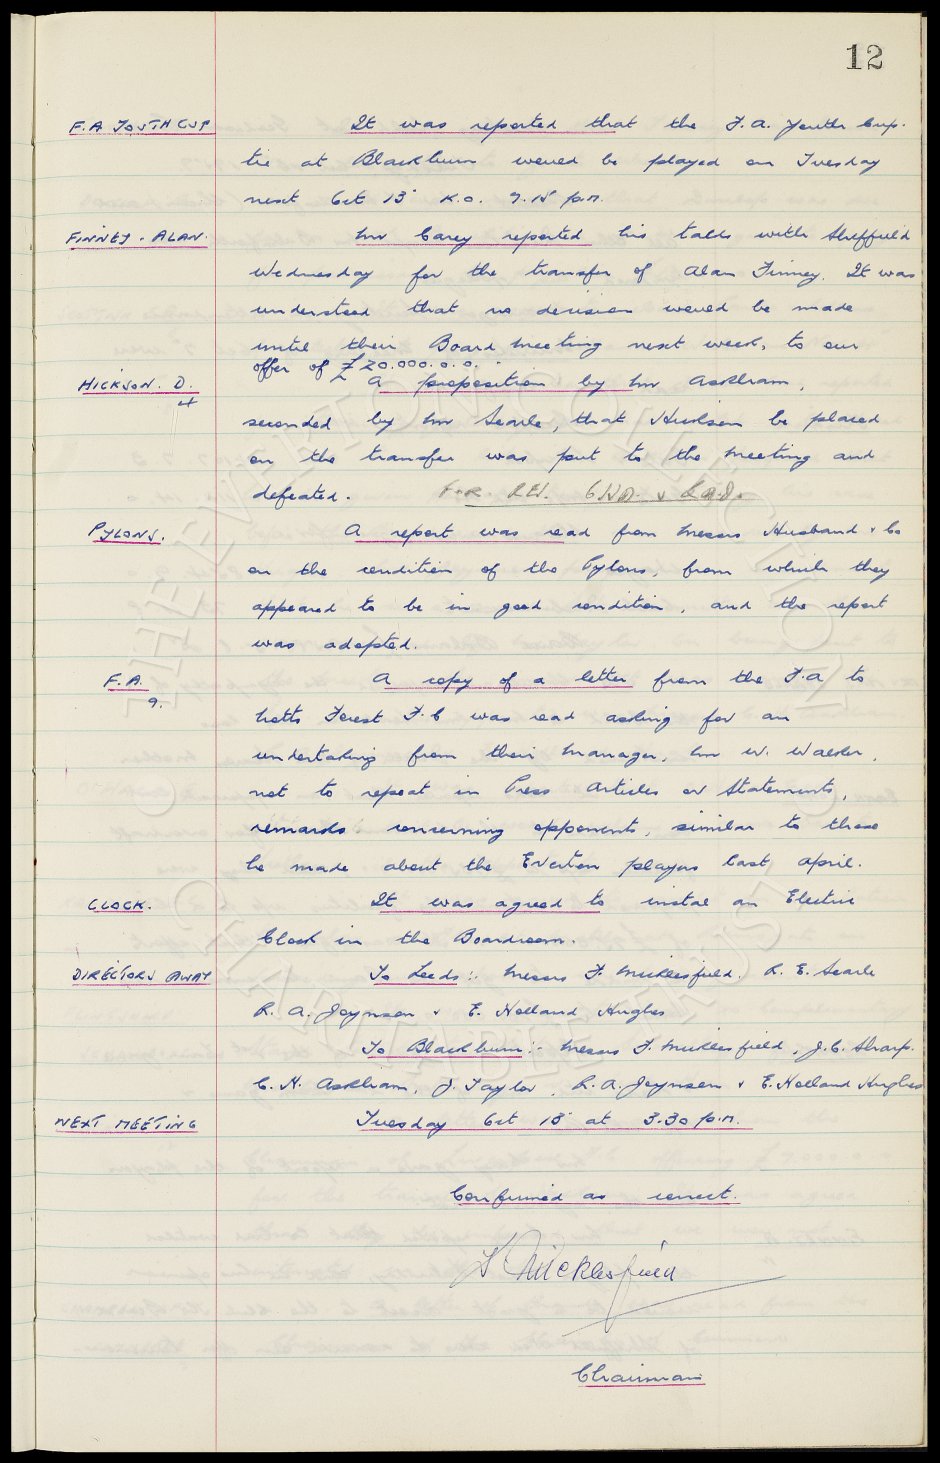 12
F.A YOUTH CUP It was reported that the F.A. Youth Cup.
tie at Blackburn would be played on Tuesday
next Oct 13th K.O. 7.15 p.m.
FINNEY. ALAN. Mr Carey reported his talks with Sheffield
Wednesday for the transfer of Alan Finney. It was
understood that no decision would be made
until their Board Meeting next week, to our
offer of £20.000.0.0.
HICKSON. D. A proposition by Mr Askham,
4
seconded by Mr Searle, that Hickson be placed
on the transfer was put to the meeting and
defeated. FOR. REV.
PYLONS. A report was read from Messrs Husband & Co
on the condition of the Pylons, from which they
appeared to be in good condition, and the report
was adopted.
F.A. A copy of a letter from the F.A to
9.
Notts Forest F.C was read asking for an
undertaking from their Manager, Mr W. Walker,
not to repeat in Press Articles or Statements,
remarks concerning opponents, similar to those
he made about the Everton players last April.
CLOCK. It was agreed to instal an Electric
Clock in the Boardroom.
DIRECTORS AWAY To Leeds:- Messrs F. Micklesfield. R. E. Searle
R. A. Joynson & E. Holland Hughes
To Blackburn:- Messrs F. Micklesfield, J.C. Sharp.
C. H. Askham, J. Taylor, R. A. Joynson & E. Holland Hughes
NEXT MEETING Tuesday Oct 13th at 3.30 p.m.
Confirmed as correct.
F Micklesfield
Chairman
THE EVERTON COLLECTION
CHARITABLE TRUST